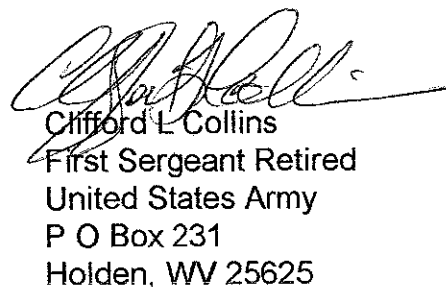 Clifford L Collins
First Sergeant Retired
United States Army
P O Box 231
Holden, WV 25625